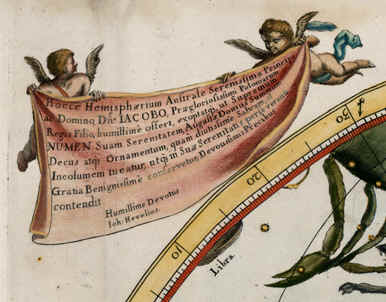 Hocce Hemisphærium Australe Serenissimo Principi
ac Domino Dño IACOBO, Prægloriosissimi Polonarum
Regis Filio, humillimè offert, exoptatim, ut Supremum
NUMEN Suam Serenitatem, Augustæ Domûs
Decus atq́ Ornamentum, quam diutissimè
Incolumem tueatur, utq́ in Sua Serenitatis perpetuo
Gratia Benignissimè conservetur, Devotissimis Precibus
contendit
Humillimè Devotus
Joh: Hevelius.
Libra.
10
20
4